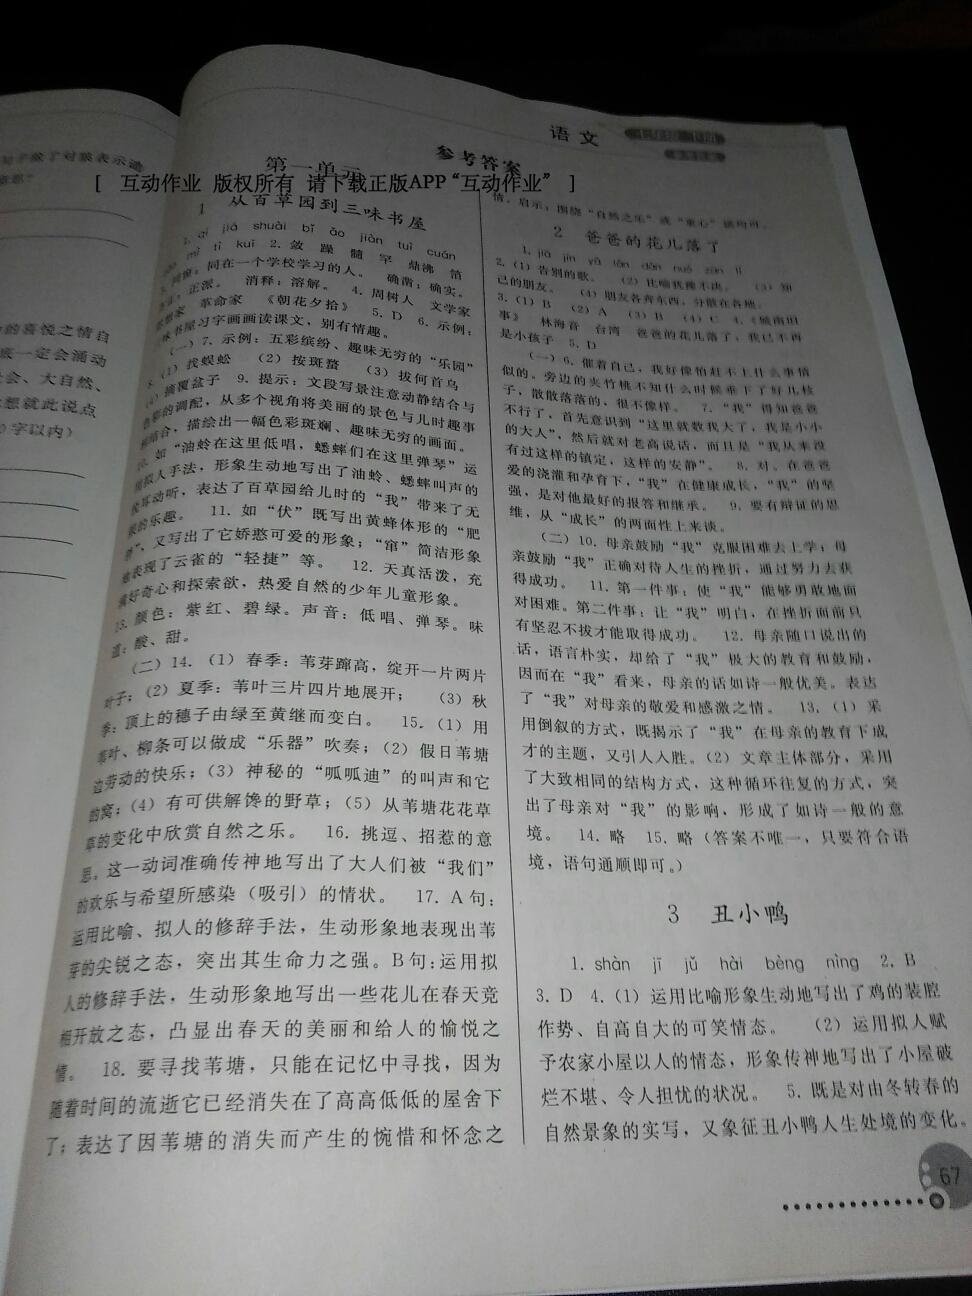 语文
参考答案
第一单元
[ 互动作业 版权所有 请下载正版APP“互动作业” ]
1 从百草园到三味书屋
shuài bǐ ǎo jiàn tuì cuán
mì tì kuǐ 2. 敛 躁 髓 罕 鼎沸 笛
同窗：同在一个学校学习的人。 确凿：确实。
正派。 消释：溶解。 4. 周树人 文学家
革命家 《朝花夕拾》 5. D 6. 示例：
味书屋习字画画读课文，别有情趣。
（一）7. 示例：五彩缤纷、趣味无穷的“乐园”
8. (1) 找蜈蚣 (2) 按斑蝥 (3) 拔何首乌
摘覆盆子 9. 提示：文段写景注意动静结合与
的调配，从多个视角将美丽的景色与儿时趣事
结合，描绘出一幅色彩斑斓、趣味无穷的画面。
10. 如“油蛉在这里低唱，蟋蟀们在这里弹琴”运
用拟人手法，形象生动地写出了油蛉、蟋蟀叫声的
悦耳动听，表达了百草园给儿时的“我”带来了无
限的乐趣。 11. 如“伏”既写出黄蜂体形的“肥
”，又写出了它娇憨可爱的形象；“窜”简洁形象
地表现了云雀的“轻捷”等。 12. 天真活泼，充
满好奇心和探索欲，热爱自然的少年儿童形象。
13. 颜色：紫红、碧绿。声音：低唱、弹琴。味
道：酸、甜。
（二）14. (1) 春季：苇芽蹿高，绽开一片两片
叶子；(2) 夏季：苇叶三片四片地展开； (3) 秋
季：顶上的穗子由绿至黄继而变白。 15. (1) 用
苇叶、柳条可以做成“乐器”吹奏；(2) 假日苇塘
边劳动的快乐；(3) 神秘的“呱呱迪”的叫声和它
的窝；(4) 有可供解馋的野草；(5) 从苇塘花花草
草的变化中欣赏自然之乐。 16. 挑逗、招惹的意
思。这一动词准确传神地写出了大人们被“我们”
的欢乐与希望所感染（吸引）的情状。 17. A句：
运用比喻、拟人的修辞手法，生动形象地表现出苇
芽的尖锐之态，突出其生命力之强。B句：运用拟
人的修辞手法，生动形象地写出一些花儿在春天竞
相开放之态，凸显出春天的美丽和给人的愉悦之
情。 18. 要寻找苇塘，只能在记忆中寻找，因为
随着时间的流逝它已经消失在了高高低低的屋舍下
了；表达了因苇塘的消失而产生的惋惜和怀念之
情。启示：围绕“自然之乐”或“童心”谈均可。
2 爸爸的花儿落了
2. (1) 告别的歌。 (2) 比喻犹豫不决。 (3) 知
己的朋友。 (4) 朋友各奔东西，分散在各地。
3. (1) B (2) A (3) B (4) C 4. 《城南旧
事》 林海音 台湾 爸爸的花儿落了，我已不再
是小孩子 5. D
（一）6. 催着自己，我好像怕赶不上什么事情
似的。旁边的夹竹桃不知什么时候垂下了好几枝
子，散散落落的，很不像样。 7. “我”得知爸爸
不行了，首先意识到“这里就数我大了，我是小小
的大人”，然后就对老高说话，而且是“我从来没
有过这样的镇定，这样的安静”。 8. 对。在爸爸
爱的浇灌和孕育下，“我”在健康成长，“我”的坚
强，是对他最好的报答和继承。 9. 要有辩证的思
维，从“成长”的两面性上来谈。
（二）10. 母亲鼓励“我”克服困难去上学；母
亲鼓励“我”正确对待人生的挫折，通过努力去获
得成功。 11. 第一件事：使“我”能够勇敢地面
对困难。第二件事：让“我”明白，在挫折面前只
有坚忍不拔才能取得成功。 12. 母亲随口说出的
话，语言朴实，却给了“我”极大的教育和鼓励，
因而在“我”看来，母亲的话如诗一般优美。表达
了“我”对母亲的敬爱和感激之情。 13. (1) 采
用倒叙的方式，既揭示了“我”在母亲的教育下成
才的主题，又引人入胜。(2) 文章主体部分，采用
了大致相同的结构方式，这种循环往复的方式，突
出了母亲对“我”的影响，形成了如诗一般的意
境。 14. 略 15. 略（答案不唯一，只要符合语
境，语句通顺即可。）
3 丑小鸭
1. shàn jī jǔ hài bèng nìng 2. B
3. D 4. (1) 运用比喻形象生动地写出了鸡的装腔
作势、自高自大的可笑情态。 (2) 运用拟人赋
予农家小屋以人的情态，形象传神地写出了小屋破
烂不堪、令人担忧的状况。 5. 既是对由冬转春的
自然景象的实写，又象征丑小鸭人生处境的变化。
67